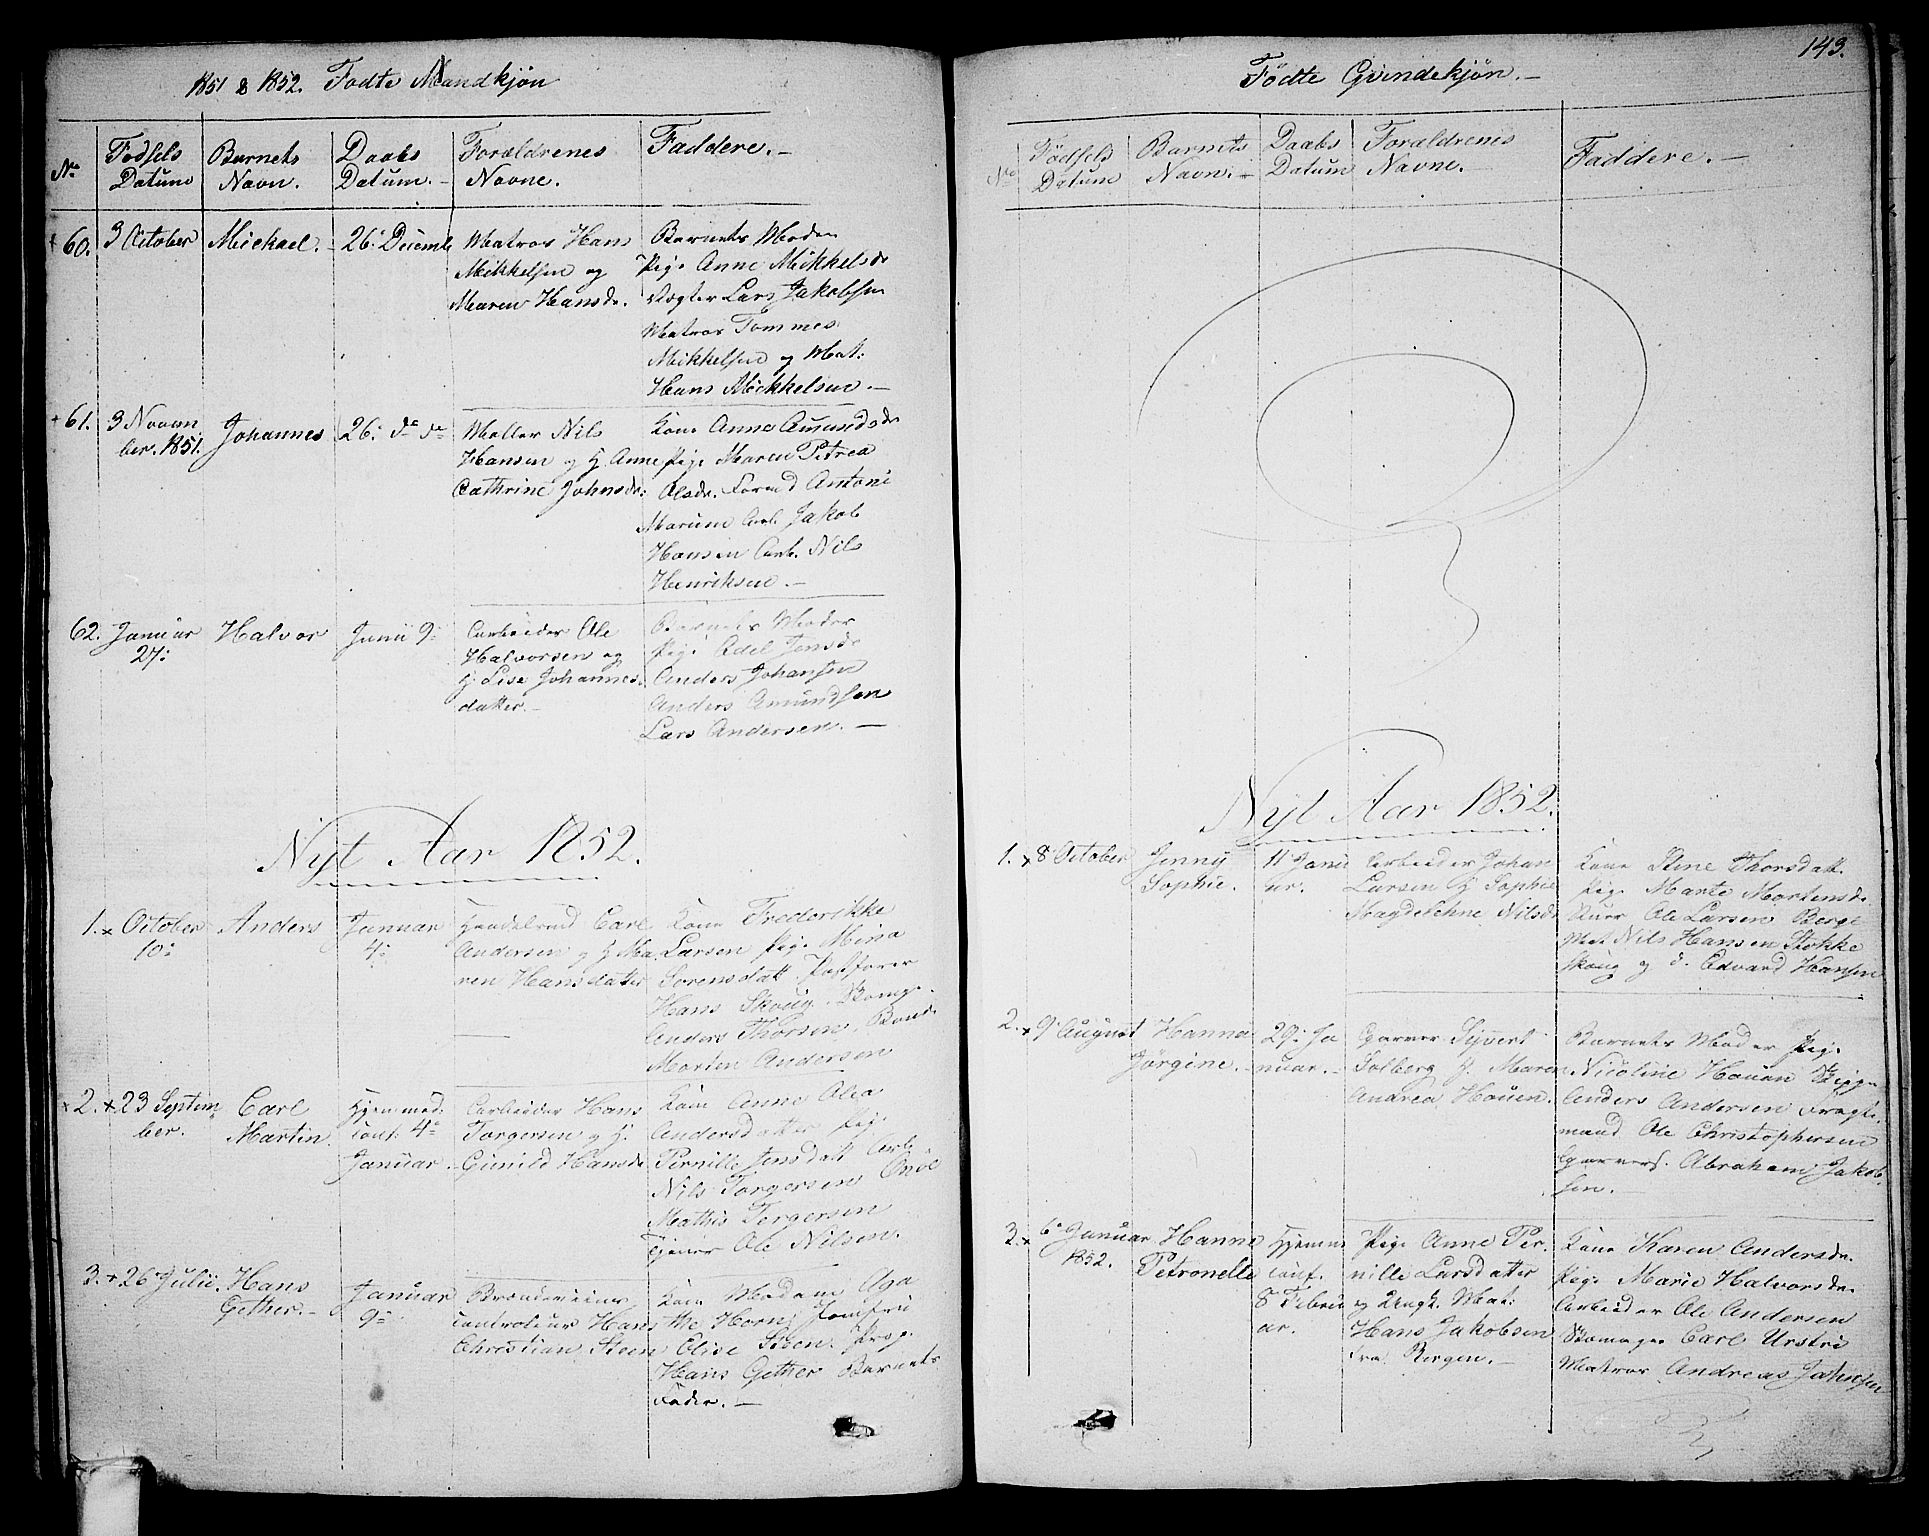 1851 & 1852. Fodte Mandkjøn
No
Fodsels
Datum
Barnets
Navn.
Daabs
Datum. -
Forældrenes
Navne.
Faddere. -
+ 60. 3 October
Mickael. -
26: Decemb
Matros Hans
Mikkelsen og
Maren Hansd.
Barnets Moder
Pige Anne Mikkelsd
Vægter Lars Jakobsen
Matros Tommes
Mikkelsen og Mat:
Hans Mikkelsen. -
+ 61. 3 Novem
ber. 1851.
Johannes
26: do do
Møller Nils
Hansen og H. Anne
Cathrine Johnsd:
Kone Anne Amundsd
Pige Maren Petrea
Olsdr. Formd Antoni
Marum Arb. Jakob
Hansen Arb. Nils
Henriksen. -
62. Januar
27:
Halvor
Junii 9:
Arbeider Ole
Halvorsen og
H. Lise Johannes
datter. -
Barnets Moder
Pige Adel Jensd
Anders Johansen
Anders Amundsen
Lars Andersen. -
Nyt Aar 1852.
1. x October
10:
Anders
Januar
4:
Handelsmd Carl
Andersen og H Ma
ren Hansdatter
Kone Frederikke
Larsen Pige Mina
Sorensdatt. Postfører
Hans Skoug. Skomgr.
Anders Thorsen. Bonde
Morten Andersen
x 2. x 23 Septem
ber.
Carl
Martin.
Hjemmed:
conf: 4:
Januar. -
Arbeider Hans
Torgersen og H.
Gunild Hansd.
Kone Anne Olea
Andersdatter Pige
Pernille Jensdatt Arb
Nils Torgersen
Mathis Torgersen
Tjener Ole Nilsen.
3. + 26 Julii.
Hans
Gether. -
Januar
9:
Brændeviins
controleur Hans
Christian Steen
Kone Madam Aga
the Horn. Jomfru
Elise Steen. Prog.
Hans Gether Barnets
Fader. -
143.
Fødte Qvindekjøn. -
No
Fødsels
Datum
Barnets
Navn. -
Daabs
Datum
Forældrenes
Navne. -
Faddere. -
Nyt Aar 1852.
1. x 8 October
Jenny
Sophie.
11 Janu
ar.
Arbeider Johan
Larsen H Sophie
Magdelehne Nilsd
Kone Stine Thorsdatt.
Pige Marte Mortensd.
Stuer Ole Larsen Berge
Mat Nils Hansen Stokke
skoug og d. Edvard Hansen
2. x 9 August
Hanna
Jörgine. -
29: Ja
nuar. -
Garver Syvert
Solberg H. Maren
Andrea Houen.
Barnets Moder Pige
Nicoline Houen Skipp
Anders Andersen Fragte
mand Ole Christophersen
Garvers. Abraham Jakob
sen. -
3. x 6 Januar
1852.
Hanne
Petronelle
Hjemme
conf.
8 Febru
ar.
Pige Anne Per
nille Larsdatter
og Ungk. Mat:
Hans Jakobsen
fra Bergen. -
Kone Karen Andersdr.
Pige Marie Halvorsdr.
Arbeider Ole Andersen
Skomager Carl Urstri
Matros Andreas Johnsen